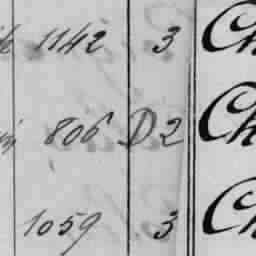 1142 3 Ch
806 D2 Ch
1059 3 Ch